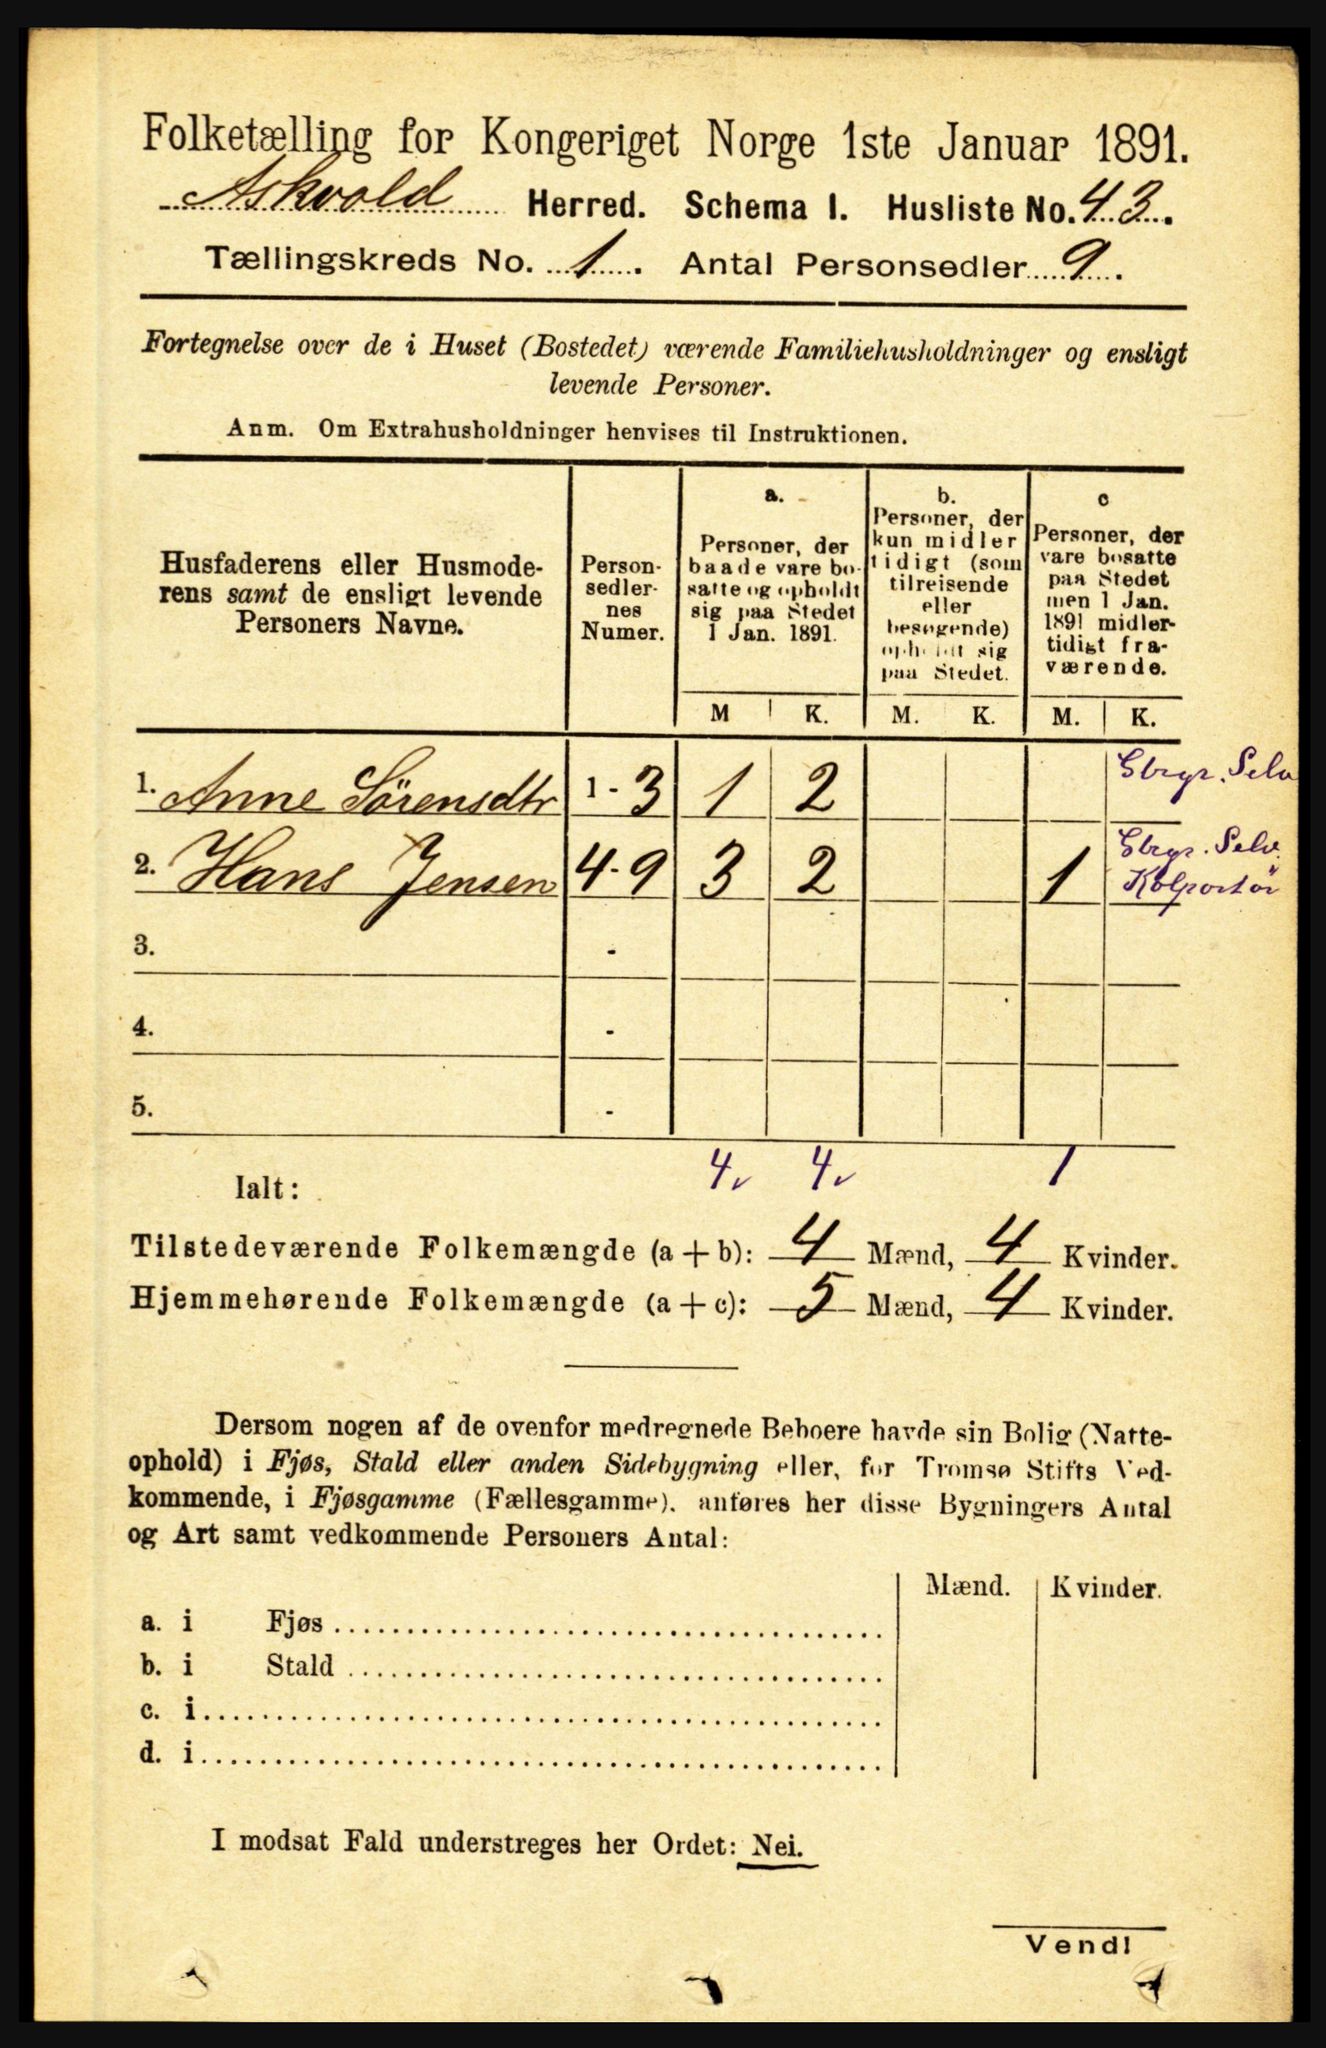 Folketælling for Kongeriget Norge 1ste Januar 1891.
Askvold Herred. Schema I. Husliste No. 43.
Tællingskreds No. 1. Antal Personsedler 9.
Fortegnelse over de i Huset (Bostedet) værende Familiehusholdninger og ensligt
levende Personer.
Anm. Om Extrahusholdninger henvises til Instruktionen.
Husfaderens eller Husmode-
rens samt de ensligt levende
Personers Navne.
Person-
sedler-
nes
Numer.
a.
Personer, der
baade vare bo-
satte og opholdt
sig paa Stedet
1 Jan. 1891.
b.
Personer, der
kun midler
tidigt (som
tilreisende
eller
besøgende)
opholdt sig
paa Stedet.
c
Personer, der
vare bosatte
paa Stedet
men 1 Jan.
1891 midler-
tidigt fra-
værende.
M K. M. K. M. K.
1. Anne Sörensdtr 1 - 3 1 2 Gbrgr. Selv
2. Hans Jensen 4 - 9 3 2 1 Gbrgr. Selv.
Kolportör
3. -
4. -
5. -
Ialt: 4 4 1
Tilstedeværende Folkemængde (a + b): 4 Mænd, 4 Kvinder.
Hjemmehørende Folkemængde (a + c): 5 Mænd, 4 Kvinder.
Dersom nogen af de ovenfor medregnede Beboere havde sin Bolig (Natte-
ophold) i Fjøs, Stald eller anden Sidebygning eller, for Tromsø Stifts Ved-
kommende, i Fjøsgamme (Fællesgamme), anføres her disse Bygningers Antal
og Art samt vedkommende Personers Antal:
Mænd. Kvinder.
a. i Fjøs
b. i Stald
c. i
d. i
I modsat Fald understreges her Ordet: Nei.
Vend!